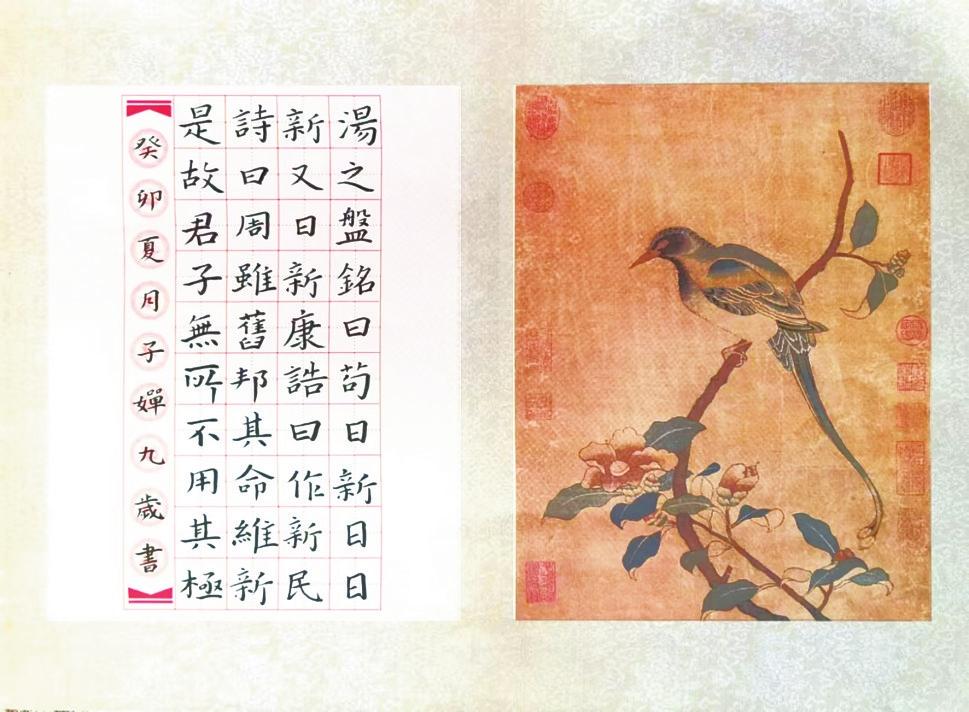 湯之盤銘曰苟日新日日
新又日新康誥曰作新民
詩曰周雖舊邦其命維新
是故君子無所不用其極
癸卯夏月子嬋九歲書